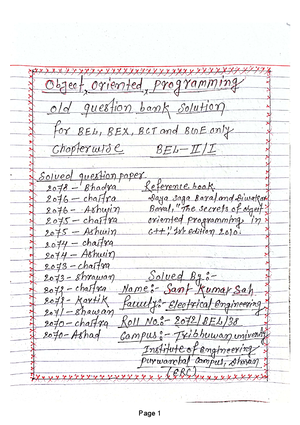 Object, oriented, programming
old question bank solution
for BEL, BEX, BCT and BGE only
Chapterwise BEL-II/I
Solved question paper
2078 - Bhadra
2076 - chaitra
2076 - Ashwin
2075 - chaitra
2075 - Ashwin
2074 - chaitra
2074 - Ashwin
2073 - chaitra
2073 - shrawan
2072 - chaitra
2072 - kartik
2071 - shawan
2070 - chaitra
2070 - Ashad
Reference book
Daya Saga Baral and Diwakar
Baral, "The secrets of object
oriented programming in
C++", 1st edition 2010.
Solved By:-
Name:- Sant Kumar Sah
Faculty:- Electrical Engineering
Roll No:- 2072/BEL/38
Campus:- Tribhuwan university
Institute of Engineering
purwanchal campus, Dharan
(ERC)
Page 1